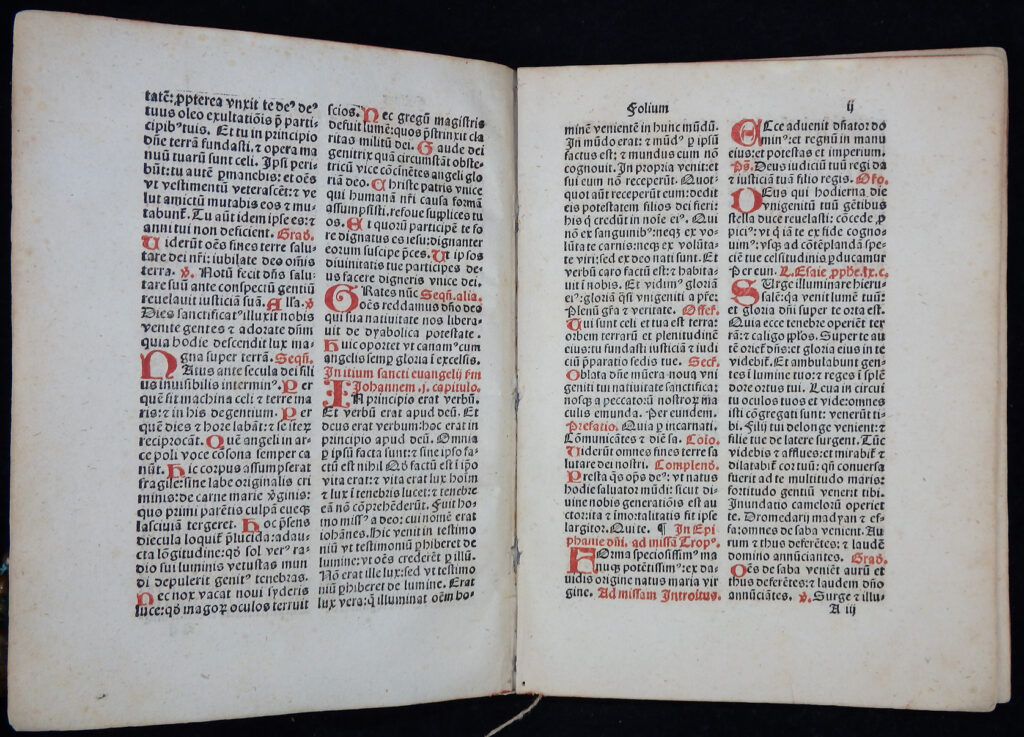 tatē: ꝓpterea vnxit te deꝰ deꝰ
tuus oleo exultationis p̄ parti-
cipibꝰ tuis. Et tu in principio
dn̄e terrā fundasti: ⁊ opera ma
nuū tuarū sunt celi. Ipsi peri-
būt: tu autē ꝑmanebis: et oēs
vt vestimentū veterascēt: ⁊ ve
lut amictū mutabis eos ⁊ mu-
tabunt᷑. Tu aūt idem ipse es: ⁊
anni tui non deficient. Grad.
Uiderūt oēs fines terre salu-
tare dei nr̄i: iubilate deo om̄is
terra. ꝟ. Notū fecit dn̄s salu-
tare suū ante conspectū gentiū
reuelauit iusticiā suā. Alla. ꝟ
Dies sanctificatꝰ illuxit nobis
venite gentes ⁊ adorate dn̄m
quia hodie descendit lux ma-
gna super terrā. Seqn̄.
NAtus ante secula dei fili
ius inuisibilis interminꝰ. Per
quē sit machina celi ⁊ terre ma
ris: ⁊ in his degentium. Per
quē dies ⁊ hore labāt: ⁊ se iteꝝ
reciprocāt. Quē angeli in ar-
ce poli voce cōsona semper ca
nūt. Hic corpus assumpserat
fragile: sine labe originalis cri
minis: de carne marie v̄ginis:
quo primi parētis culpā eueqꝫ
lasciuiā tergeret. Hoc p̄sens
diecula loquit᷑ p̄lucida: adau-
cta lōgitudine: qō sol verꝰ ra-
dio sui luminis vetustas mun
di depulerit genitꝰ tenebras.
Nec nox vacat noui syderis
luce: qō magoꝝ oculos terruit
scios. Nec gregū magistris
defuit lumē: quos p̄strinxit cla
ritas militū dei. Gaude dei
genitrix quā circūstāt obste-
tricū vice cōcinētes angeli glo
riā deo. Christe patris vnice
qui humanā nr̄i causa formā
assumpsisti. refoue supplices tu
os. Et quorū participē te fo
re dignatus es iesu: dignanter
eorum suscipe p̄ces. Ut ipsos
diuinitatis tue participes de-
us facere digneris vnice dei.
GRates nūc Seqn̄. alia.
oēs reddamus dn̄o deo
qui sua natiuitate nos libera-
uit de dyabolica potestate.
Huic oportet vt canamꝰ cum
angelis semꝑ gloria ī excelsis.
Initium sancti euangelij ẜm
Johannem. j. capitulo.
IN principio erat verbū.
Et verbū erat apud deū. Et
deus erat verbum: hoc erat in
principio apud deū. Omnia
ꝑ ipsū facta sunt: ⁊ sine ipso fa-
ctū est nihil Qō factū est ī ipō
vita erat: ⁊ vita erat lux hoīm
⁊ lux ī tenebris lucet: ⁊ tenebre
eā nō cōprehēderūt. Fuit ho-
mo missꝰ a deo: cui nomē erat
iohānes. Hic venit in testimo
niū vt testimoniū ꝑhiberet de
lumine: vt oēs crederēt ꝑ illū.
Nō erat ille lux: sed vt testimo
niū ꝑhiberet de lumine. Erat
lux vera: q̄ illuminat oēm ho-
Folium ij
minē venientē in hunc mūdū.
In mūdo erat: ⁊ mūdꝰ ꝑ ipsū
factus est: ⁊ mundus cum nō
cognouit. In propria venit: et
sui eum nō receperūt. Quot-
quot aūt receperūt eum: dedit
eis potestatem filios dei fieri:
his q̄ credūt in noīe eiꝰ. Qui
nō ex sanguinibꝰ: neqꝫ ex vo-
lūtate carnis: neqꝫ ex volūta-
te viri: sed ex deo nati sunt. Et
verbū caro factū est: ⁊ habita-
uit ī nobis. Et vidimꝰ gloriā
eiꝰ: gloriā q̄si vnigeniti a pr̄e:
Plenū gr̄a ⁊ veritate. Offer̄.
Tui sunt celi et tua est terra:
orbem terrarū et plenitudinē
eius: tu fundasti iusticiā ⁊ iudi
ciū p̄paratio sedis tue. Secr̄.
Oblata dn̄e mūera nouꝗ vni
geniti tui natiuitate sanctifica:
nosqꝫ a peccatoꝝ nostroꝝ ma
culis emunda. Per eundem.
Prefatio. Quia ꝑ incarnati.
Cōmunicātes ⁊ diē sa. Cōio.
Uiderūt omnes fines terre sa
lutare dei nostri. Complend.
Presta q̄s oꝑs deꝰ: vt natus
hodie saluator mūdi: sicut di-
uine nobis generatiōis est au
ctor: ita ⁊ īmortalitatis sit ipse
largitor. Qui te. ¶ In Epi
phanie dn̄i. ad missā Tropꝰ.
FOrma speciosissimꝰ ma
nuqꝫ potētissimꝰ: ex da-
uidis origine natus maria vir
gine. Ad missam Introitus.
ECce aduenit dn̄ator do
minꝰ: et regnū in manu
eius: et potestas et imperium.
Ps̄. Deus iudiciū tuū regi da
⁊ iusticiā tuā filio regis. Oro.
DEus qui hodierna die
vnigenitū tuū gētibus
stella duce reuelasti: cōcede ꝓ
piciꝰ: vt q̄ iā te ex fide cogno-
uimꝰ: vsqꝫ ad cōtēplandā spe-
ciē tue celsitudinis ꝑducamur
Per eun. L. Esaie ꝓphe. lx. c.
SUrge illuminare hieru-
salē: q̄a venit lumē tuū:
et gloria dn̄i super te orta est.
Quia ecce tenebre operiēt ter-
rā: ⁊ caligo ꝓplos. Super te au
tē oriet᷑ dn̄s: et gloria eius in te
videbit᷑. Et ambulabunt gen-
tes ī lumine tuo: ⁊ reges ī splē
dore ortus tui. Leua in circui
tu oculos tuos et vide: omnes
isti cōgregati sunt: venerūt ti-
bi. Filij tui de longe venient: ⁊
filie tue de latere surgent. Tūc
videbis ⁊ afflues: et mirabit᷑ ⁊
dilatabit᷑ cor tuū: qn̄ conuersa
fuerit ad te multitudo maris:
fortitudo gentiū venerit tibi.
Inundatio cameloꝝ operiet
te. Dromedarij madyan ⁊ ef-
fa: omnes de saba venient. Au
rum ⁊ thus deferētes: ⁊ laudē
domino annūciantes. Grad.
Oēs de saba veniēt aurū et
thus deferētes: ⁊ laudem dn̄o
annūciātes. ꝟ. Surge ⁊ illu-
A iij